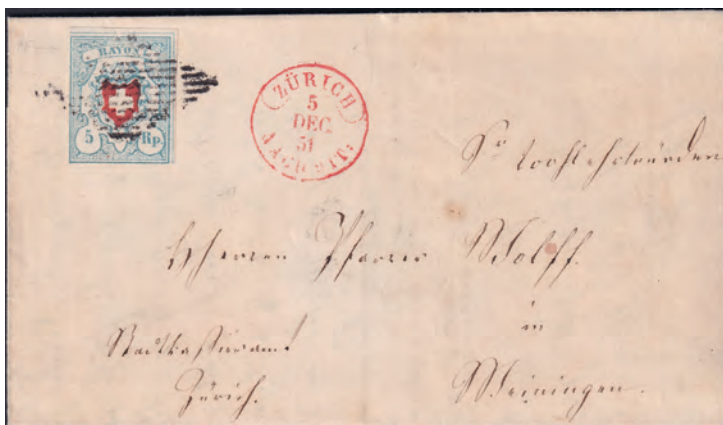 RAYON I
5 Rp.
ZÜRICH
5
DEC.
51
NACHMIT:
Sr Wohlehrwürden
Herren Pfarrer Wolff.
in
Weiningen.
Stadtkassieramt
Zürich.